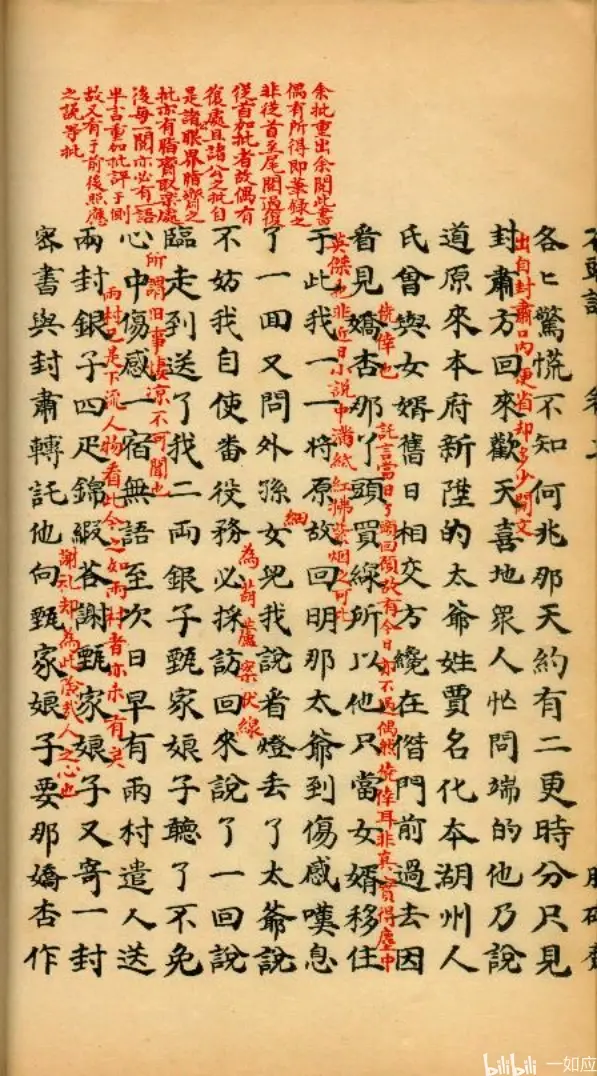 石頭記 卷二
余批重出余閱此書
偶有所得即筆錄之
非從首至尾閱過復
從首加批者故偶有
復處且諸公之批自
是諸公眼界脂齋之
批亦有脂齋取樂處
後每一閱亦必有一語
半言重加批評于側
故又有于前後照應
之說等批
各匕驚慌不知何兆那天約有二更時分只見
出自封肅口內便省却多少閒文
封肅方回來歡天喜地眾人忙問端的他乃說
道原來本府新陞的太爺姓賈名化本湖州人
氏曾與女婿舊日相交方纔在偺門前過去因
僥倖也
託言當日丫頭回顧故有今日亦不過偶然僥倖耳非真實得塵中
看見嬌杏那丫頭買線所以他只當女婿移住
英傑也非近日小說中滿紙紅拂紫烟之可比
于此我一一將原故回明那太爺到傷感嘆息
細
了一回又問外孫女兒我說看燈丟了太爺說
為葫蘆案伏線
不妨我自使番役務必採訪回來說了一回說
臨走到送了我二両銀子甄家娘子聽了不免
所謂旧事凄凉不可聞也
心中傷感一宿無語至次日早有雨村遣人送
雨村已是下流人物看此今之如雨村者亦未有矣
両封銀子四疋錦緞答謝甄家娘子又寄一封
謝礼却為此險哉人之心也
密書與封肅轉託他向甄家娘子要那嬌杏作
bilibili 一如应